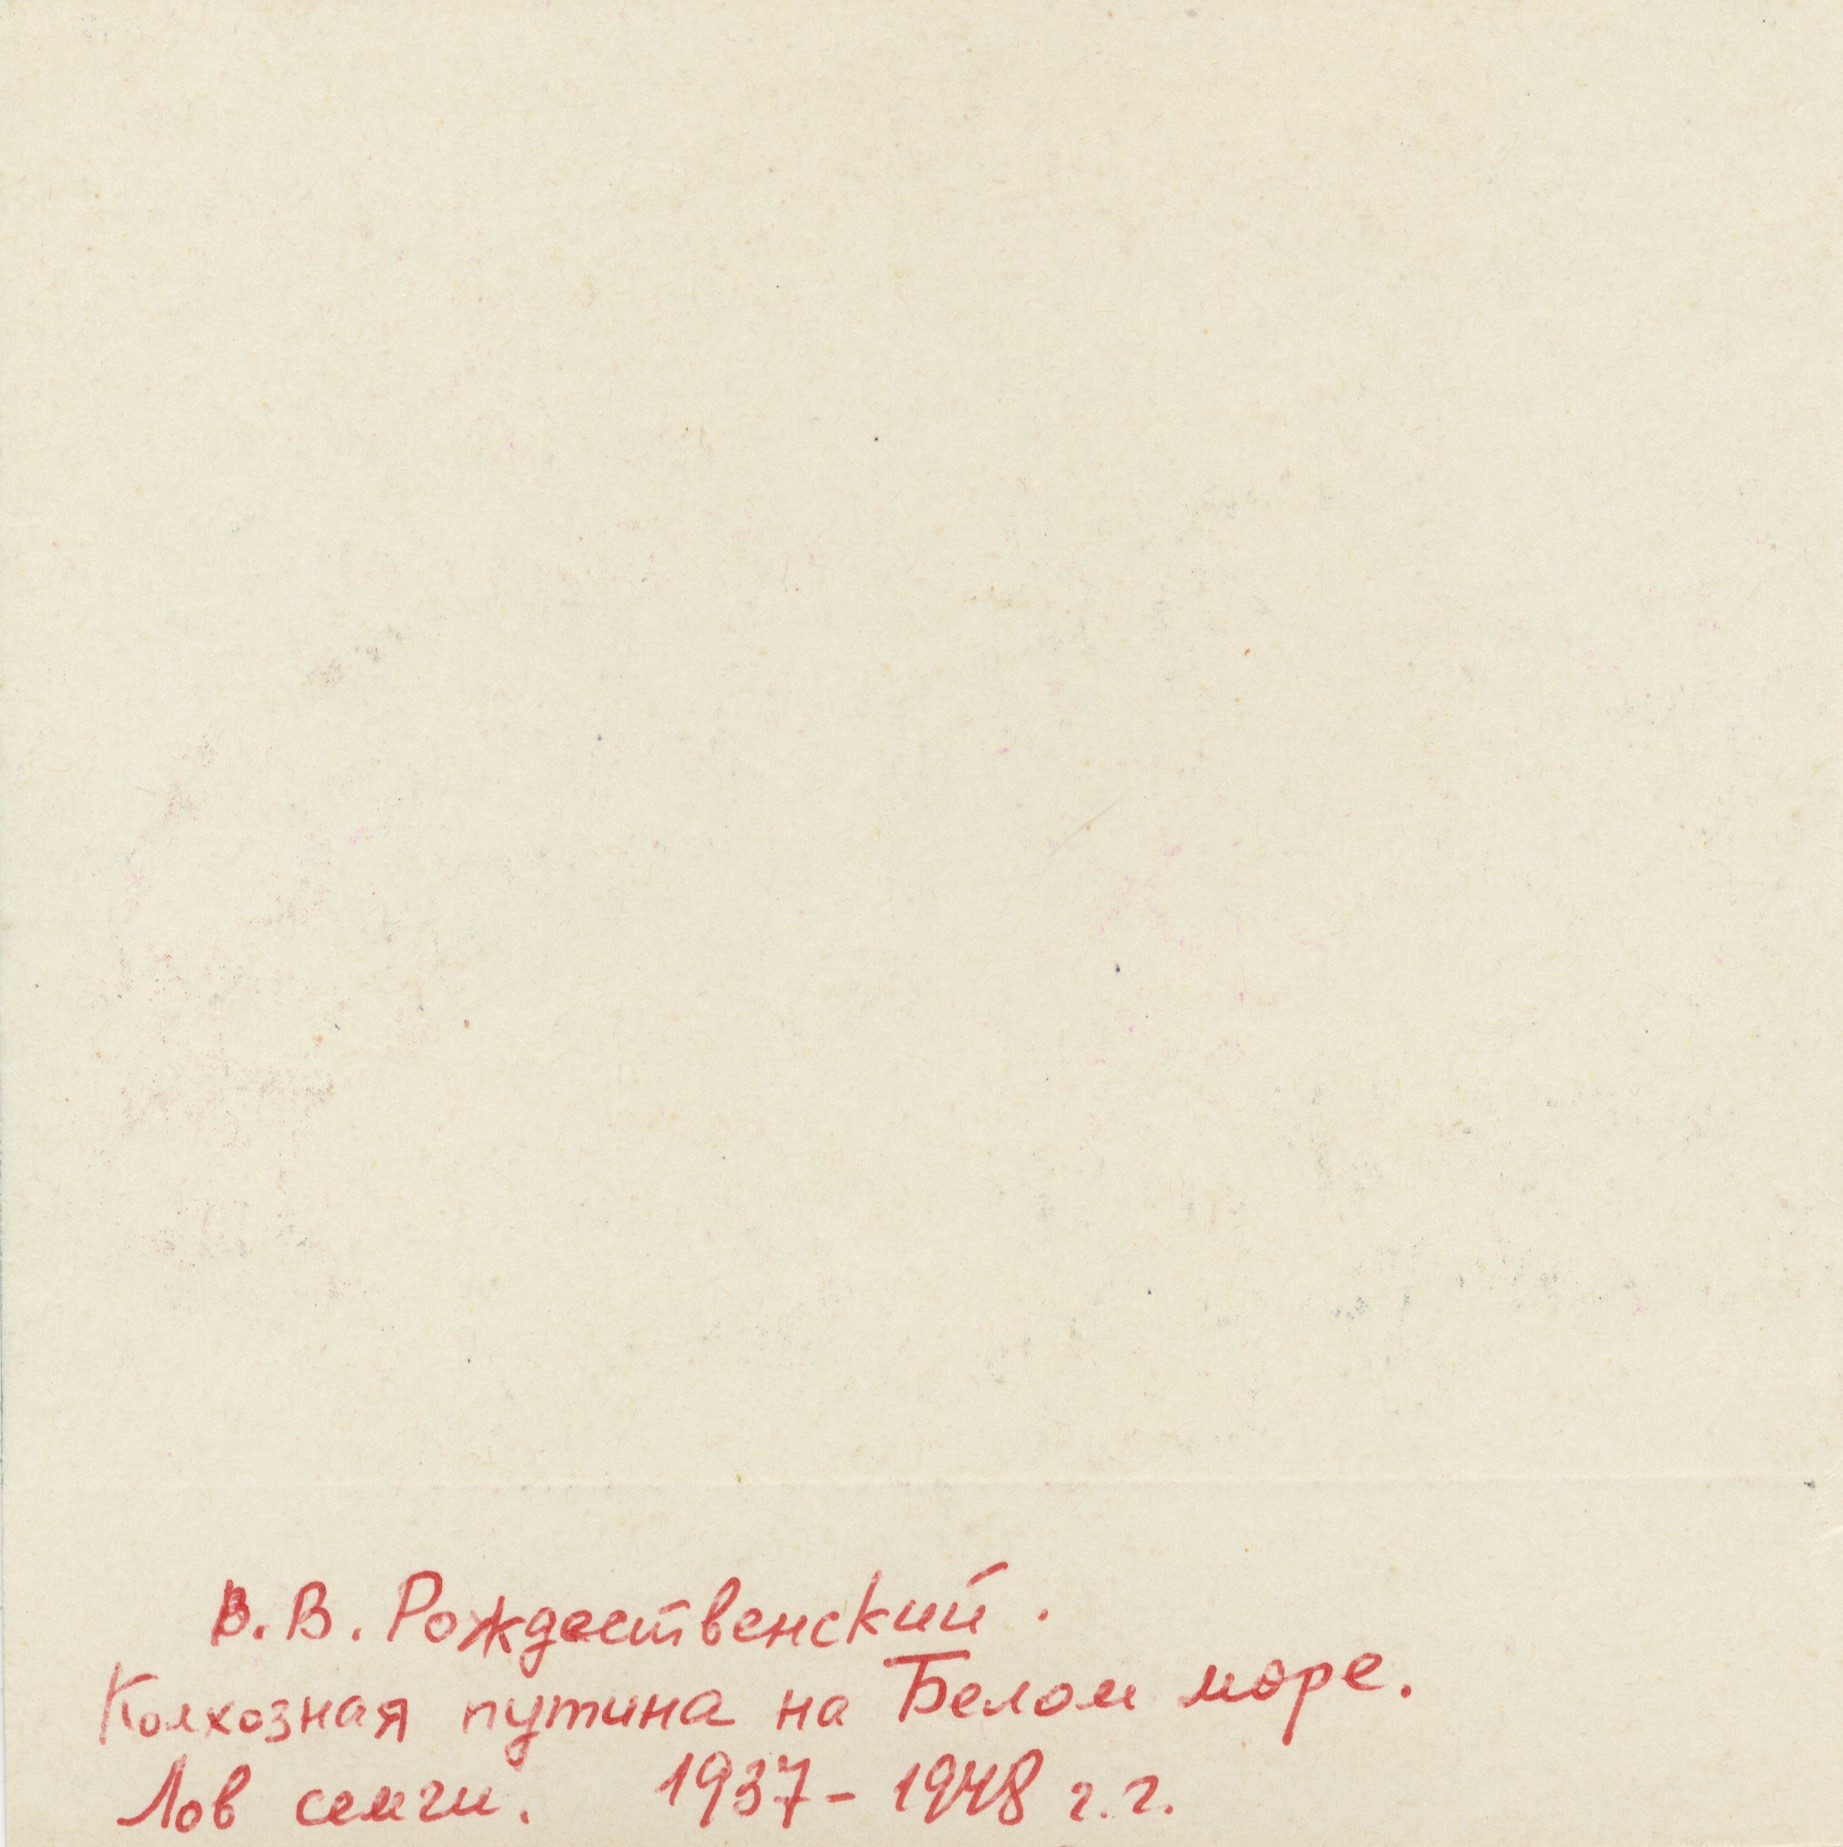 В.В. Рождественский.
Колхозная путина на Белом море.
Лов семги. 1937-1948 г.г.